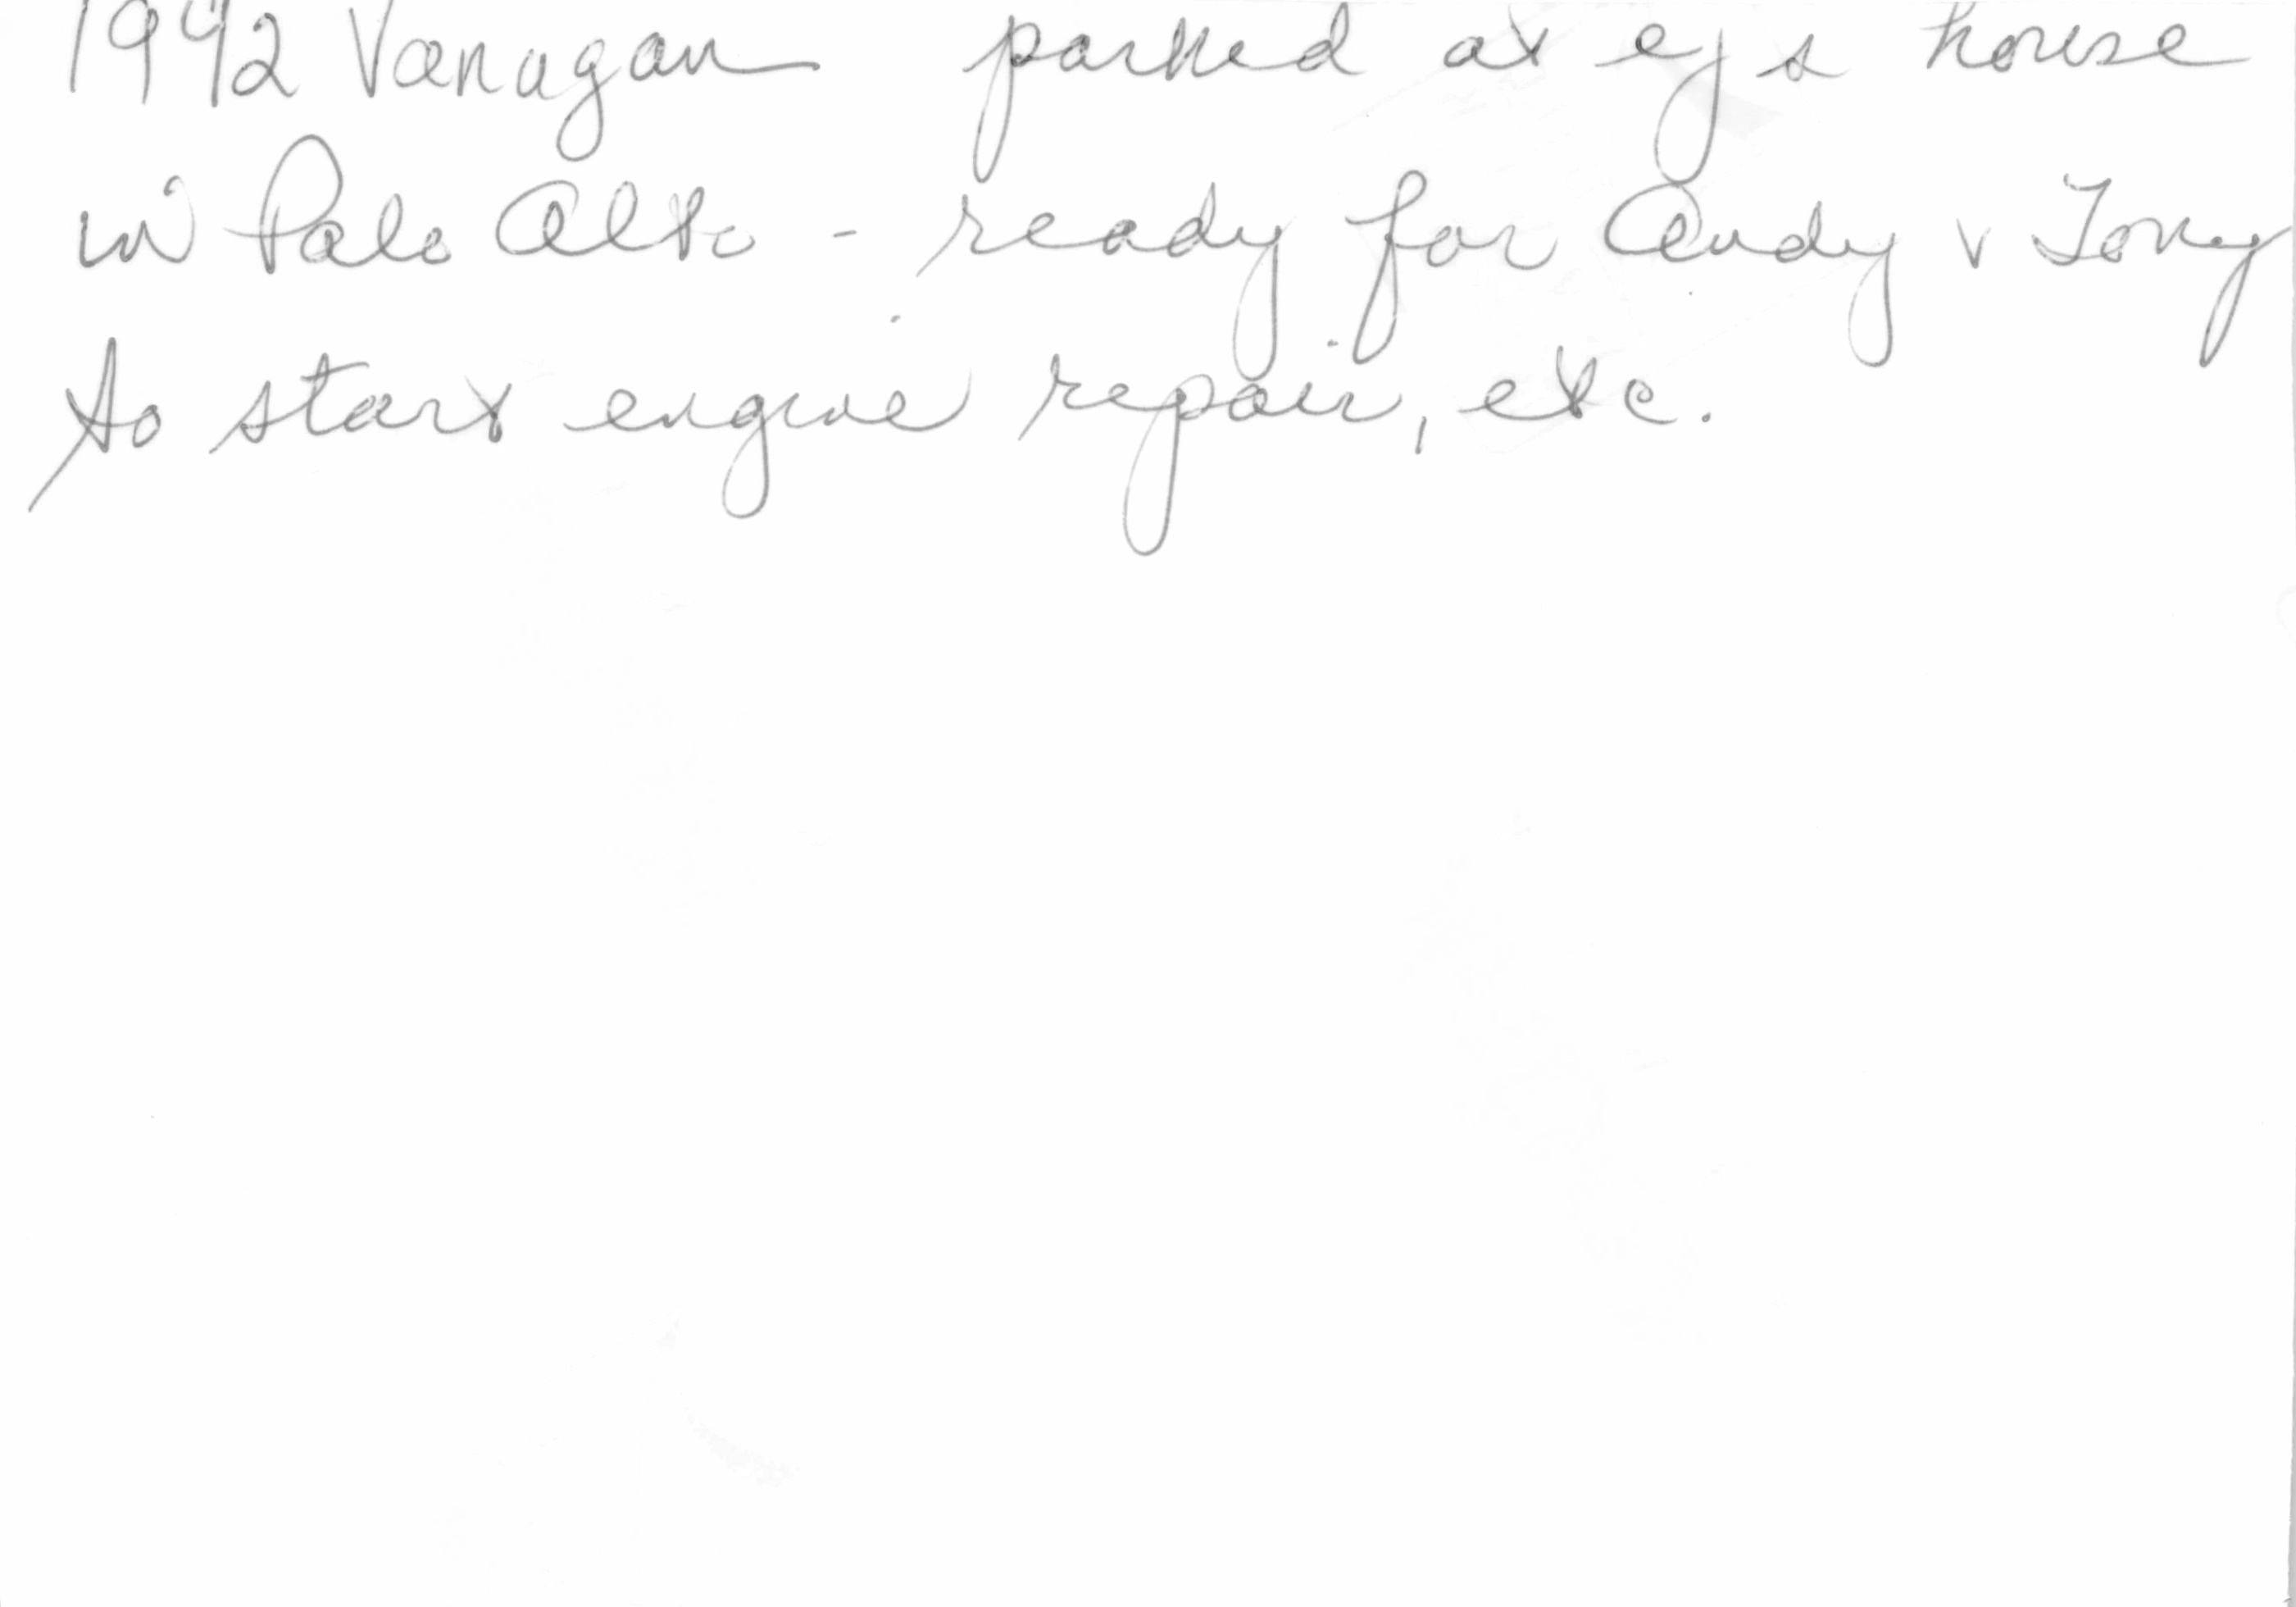 1992 Vanagan parked at ejs house
in Palo Alto - ready for Andy & Tony
to start engine repair, etc.